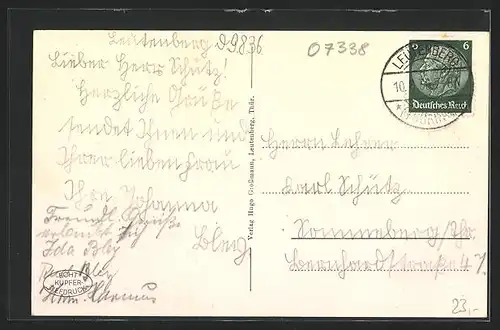 Leutenberg d. 9.8.36.
Lieber Herr Schütz!
Herzliche Grüße
sendet Ihnen und
Ihrer lieben Frau
Ihre Johanna
Bley
Freundl. Grüße
erlaubt sich
Ida Bley
Bley
ECHT
KUPFER-
TIEFDRUCK
Verlag Hugo Großmann, Leutenberg, Thür.
07338
LEUTENBERG
10.
6 6
Deutsches Reich
Herrn Lehrer
Karl Schütz
Sonneberg/Thr.
Bernhardstraße 47.
23,-